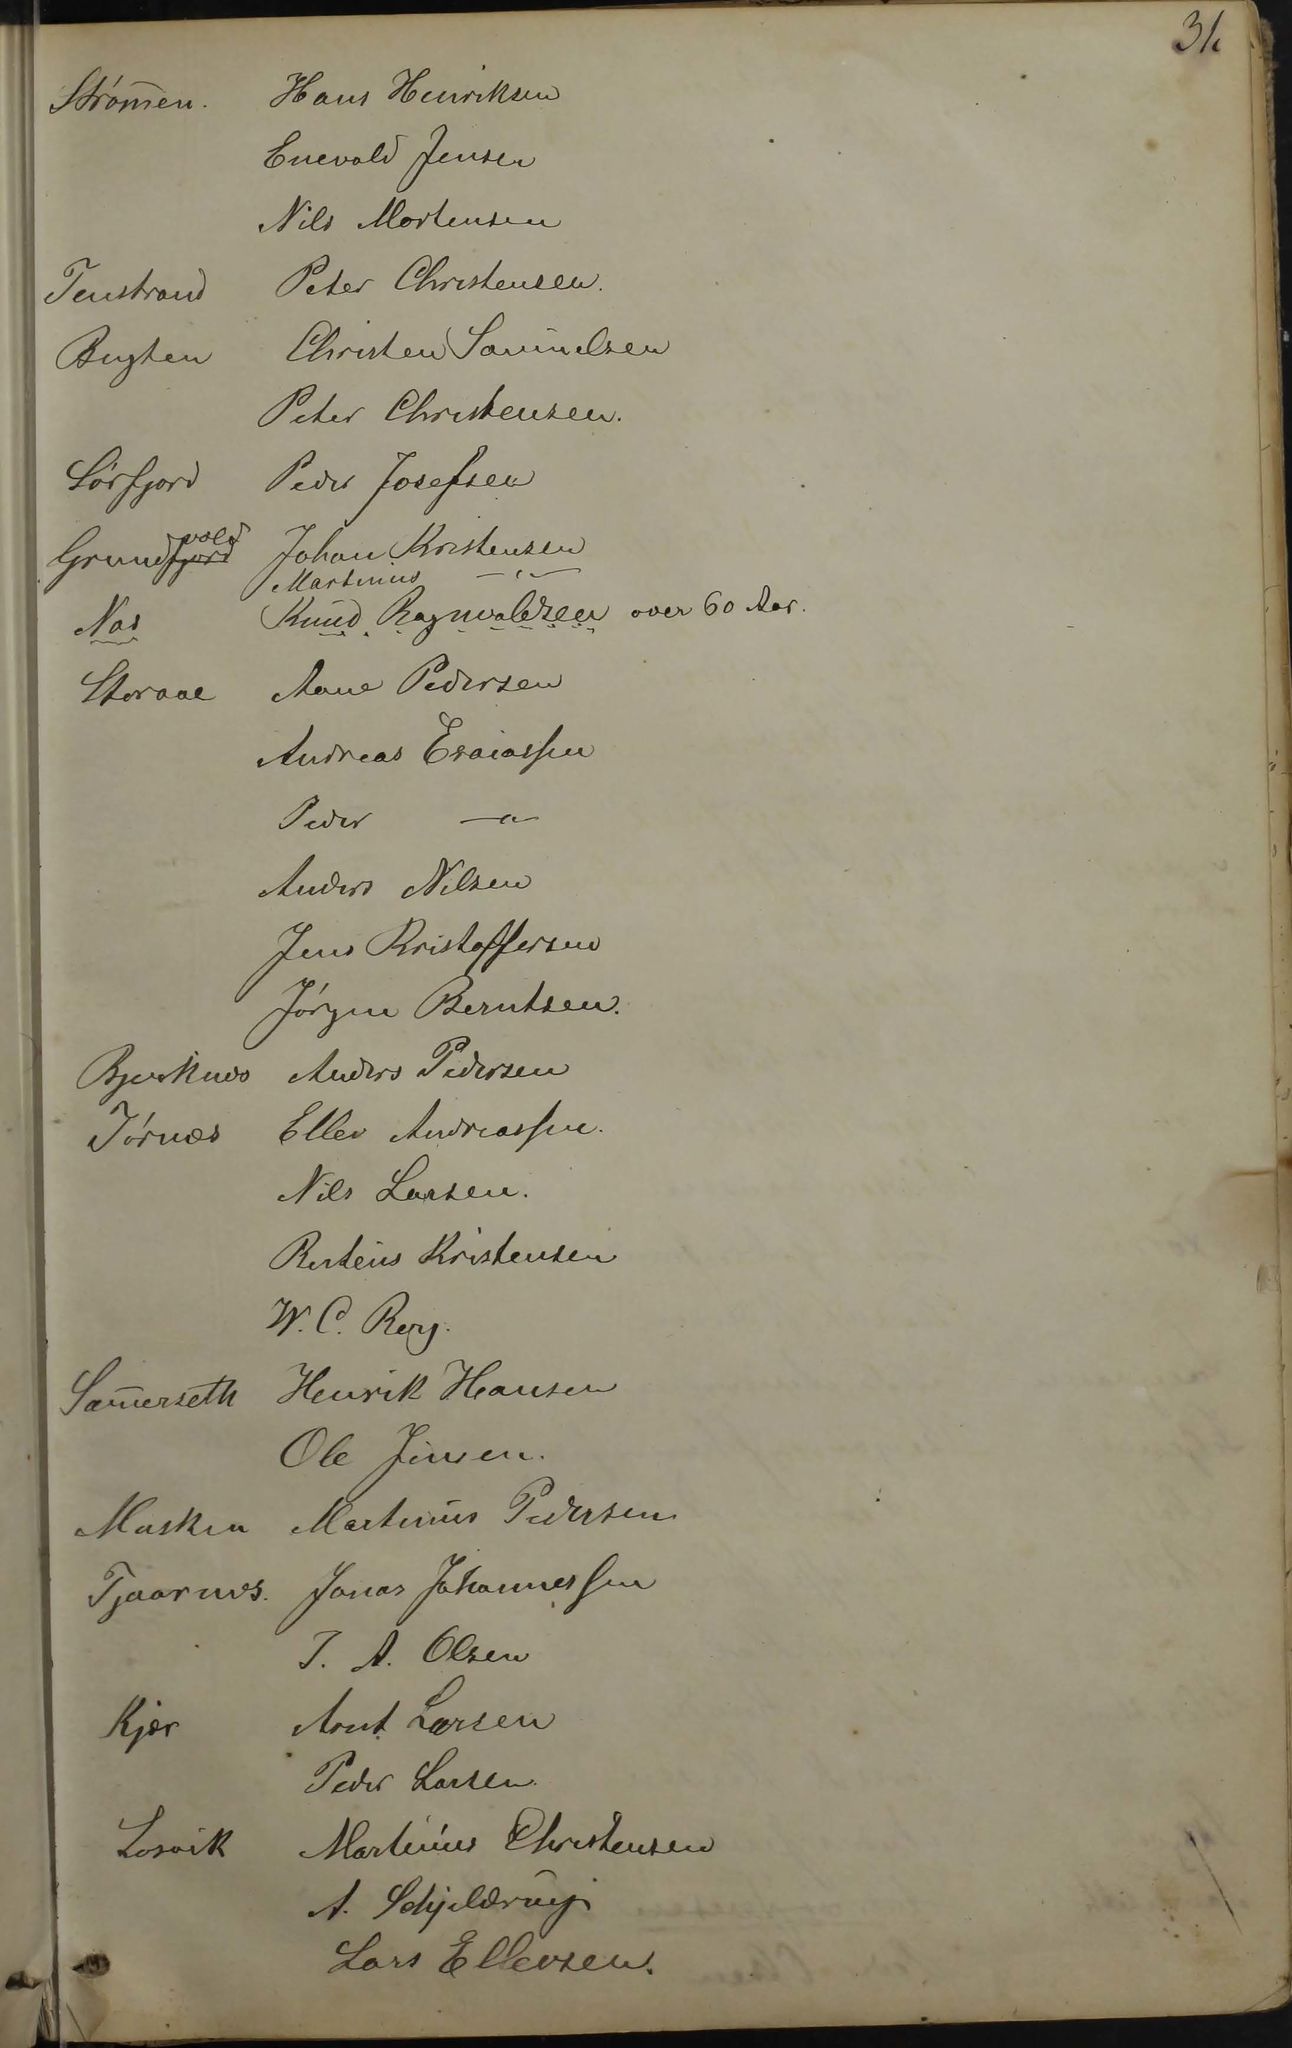 31.
Strøm̅en. Hans Henriksen
Enevold Jensen
Nils Mortensen
Tenstrand Peter Christensen.
Bugten Christen Samuelsen
Peter Christensen.
Sörfjord Peder Josefsen
vold
Grundfjord Johan Kristensen
Martinus —"—
Nas Knud Ragnvaldsen over 60 Aar.
Storaae Aane Pedersen
Andreas Esaiassen
Peder —"—
Anders Nilsen
Jens Kristoffersen
Jörgen Berntsen.
Bjerknes Anders Pedersen
Törnæs Ellev Andreassen.
Nils Larsen.
Berteus Kristensen
W. C. Berg.
Sæm̅erseth Henrik Hansen
Ole Jensen.
Musken Martinus Pedersen
Tjaarnes. Jonas Johannessen
J. A. Olsen
Kjær Arnt Larsen
Peder Larsen.
Losvik Martinus Christensen
A. Schjelderup
Lars Ellevsen.